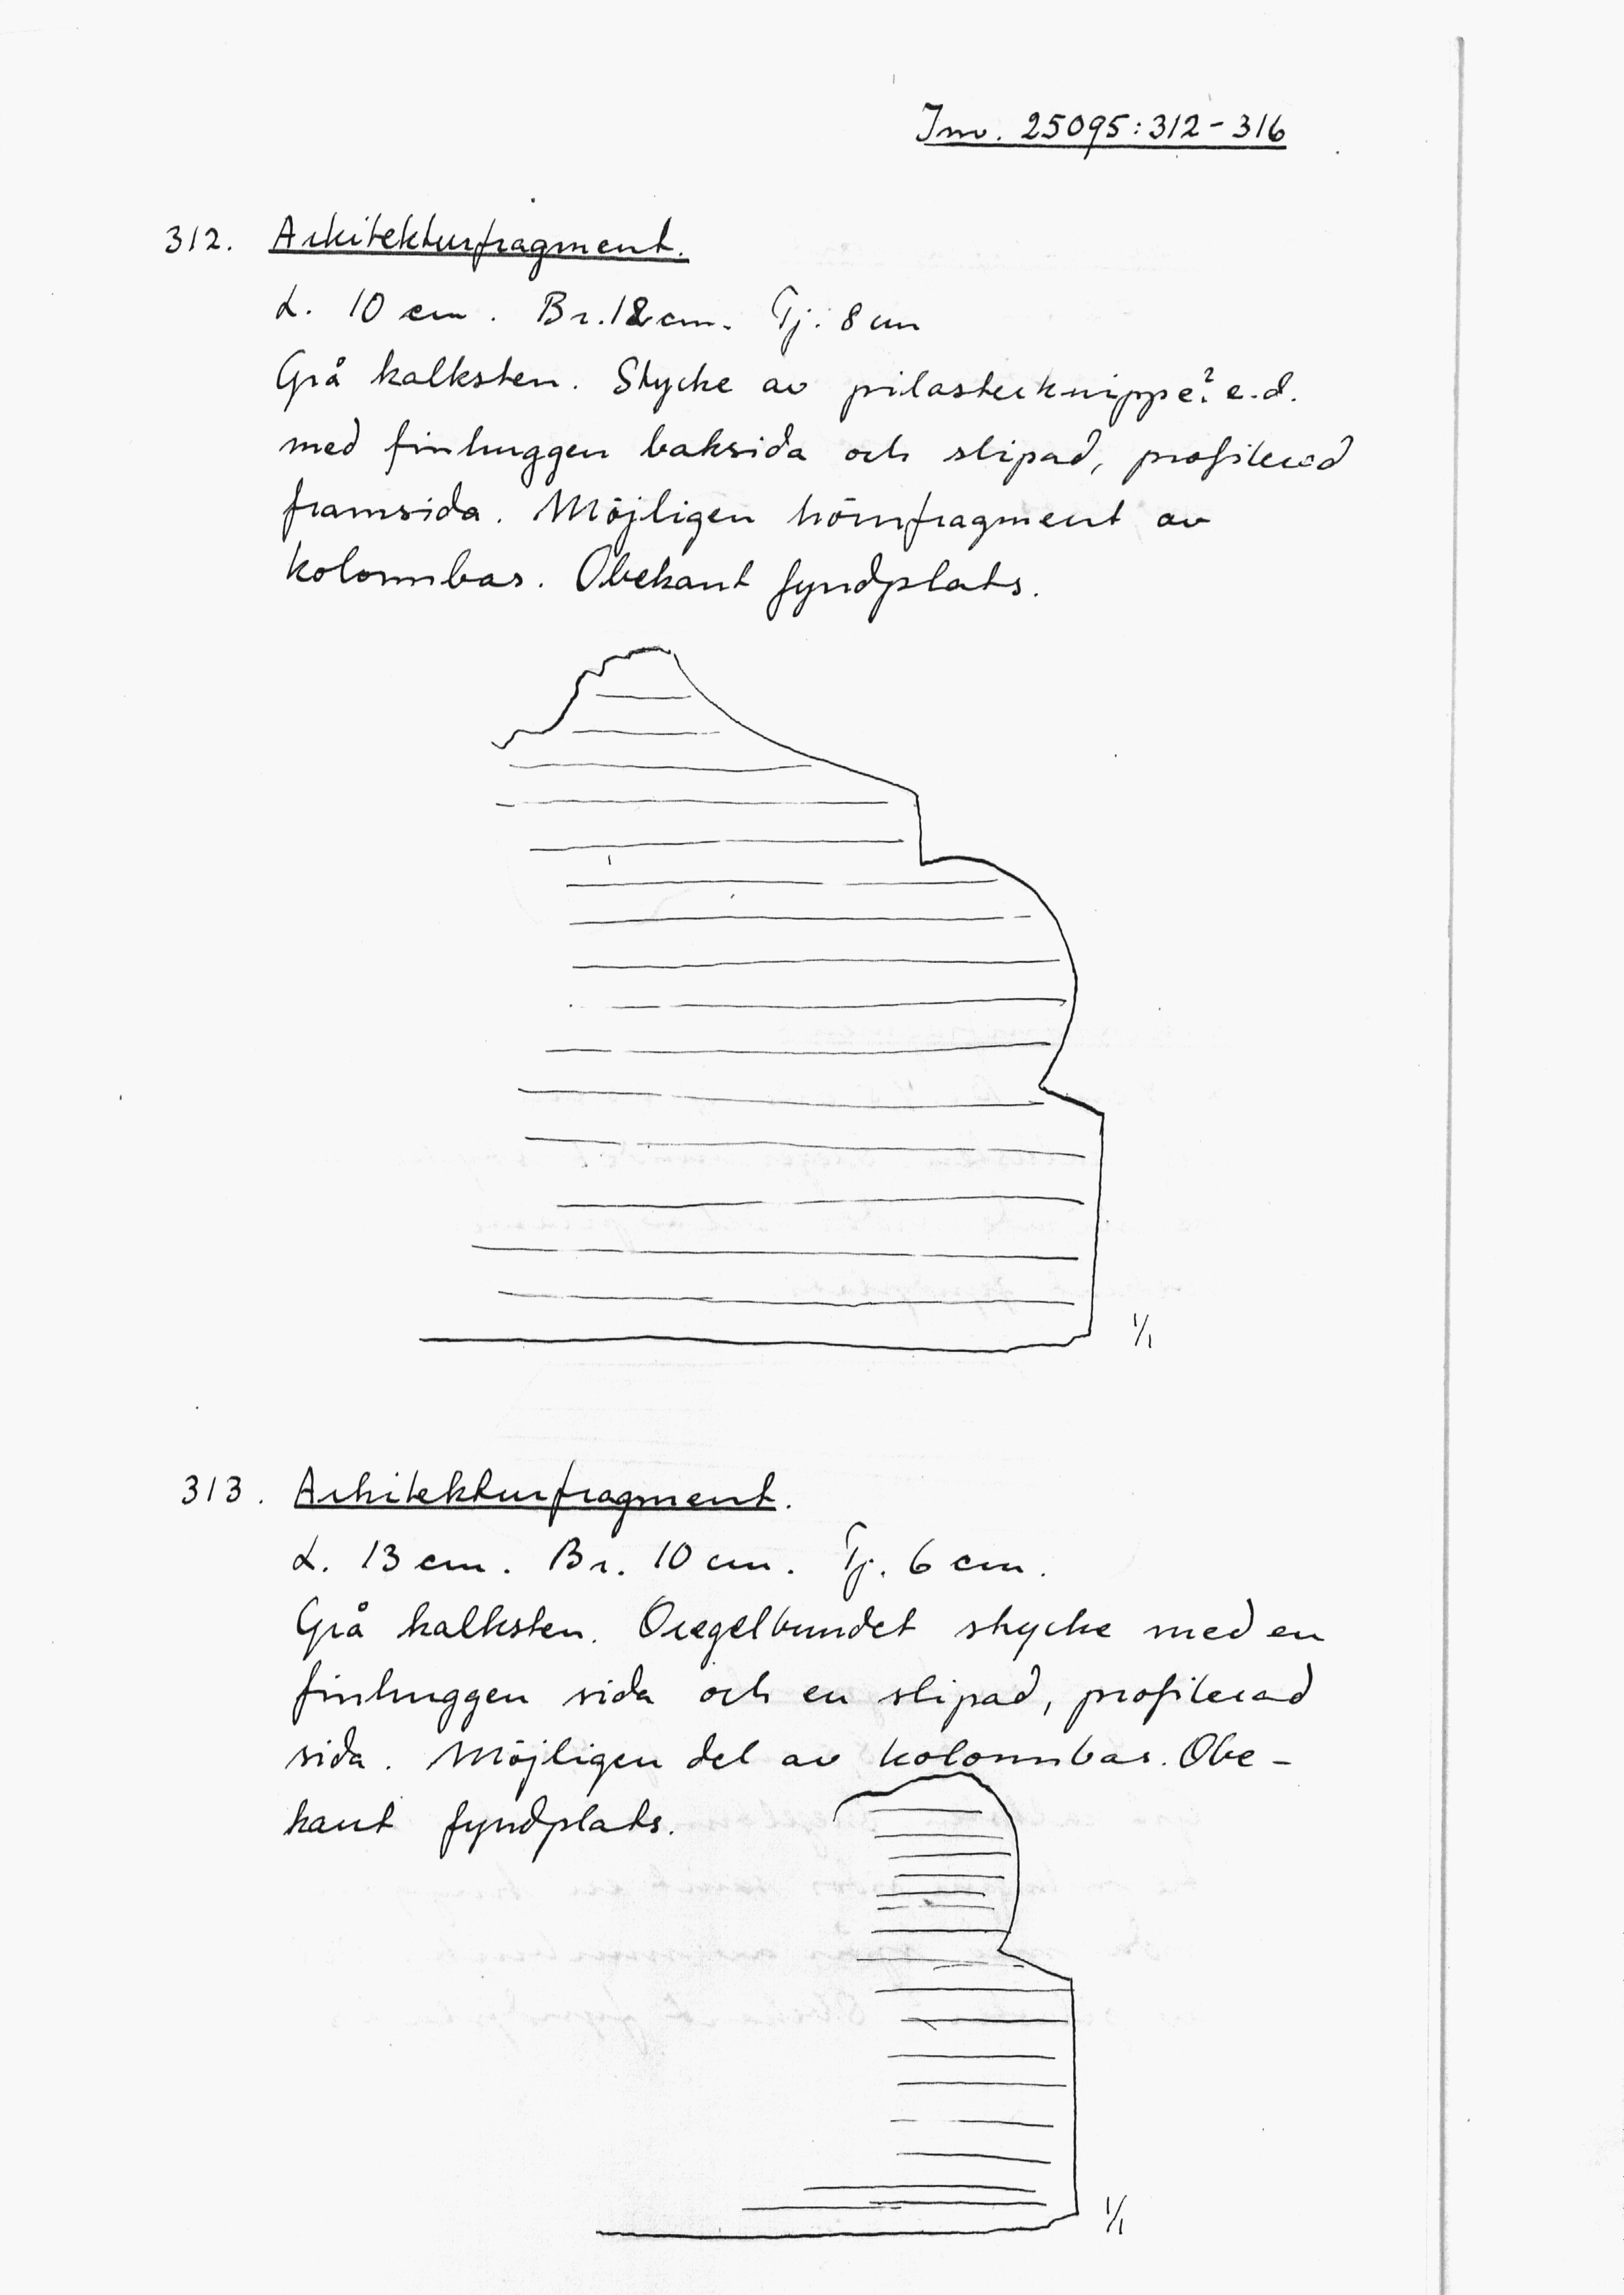 Inv. 25095:312-316
312. Arkitekturfragment.
L. 10 cm. Br. 12 cm. Tj. 8 cm
Grå kalksten. Stycke av pilasterknippe? e.d.
med finhuggen baksida och slipad, profilerad
framsida. Möjligen hörnfragment av
kolonnbas. Obekant fyndplats.
1/1
313. Arkitekturfragment.
L. 13 cm. Br. 10 cm. Tj. 6 cm.
Grå kalksten. Oregelbundet stycke med en
finhuggen sida och en slipad, profilerad
sida. Möjligen del av kolonnbas. Obe-
kant fyndplats.
1/1